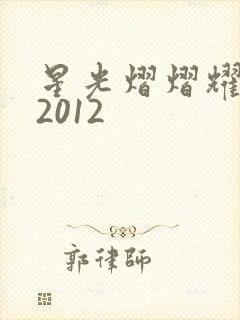 星光熠熠耀
2012
郭律師